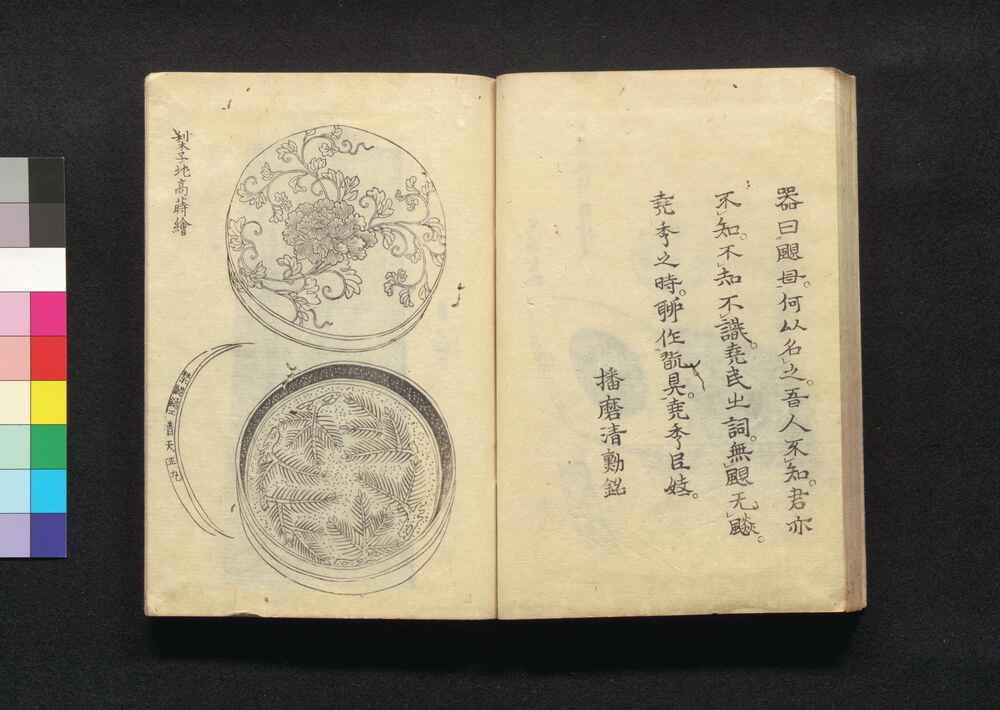 器曰颶母。何以名之。吾人不知。君亦
不知。不知不識。堯民之詞。無颶无颷。
堯季之時。聊作翫具。堯季臣妓。
播磨清勲銘
梨子地高蒔繪